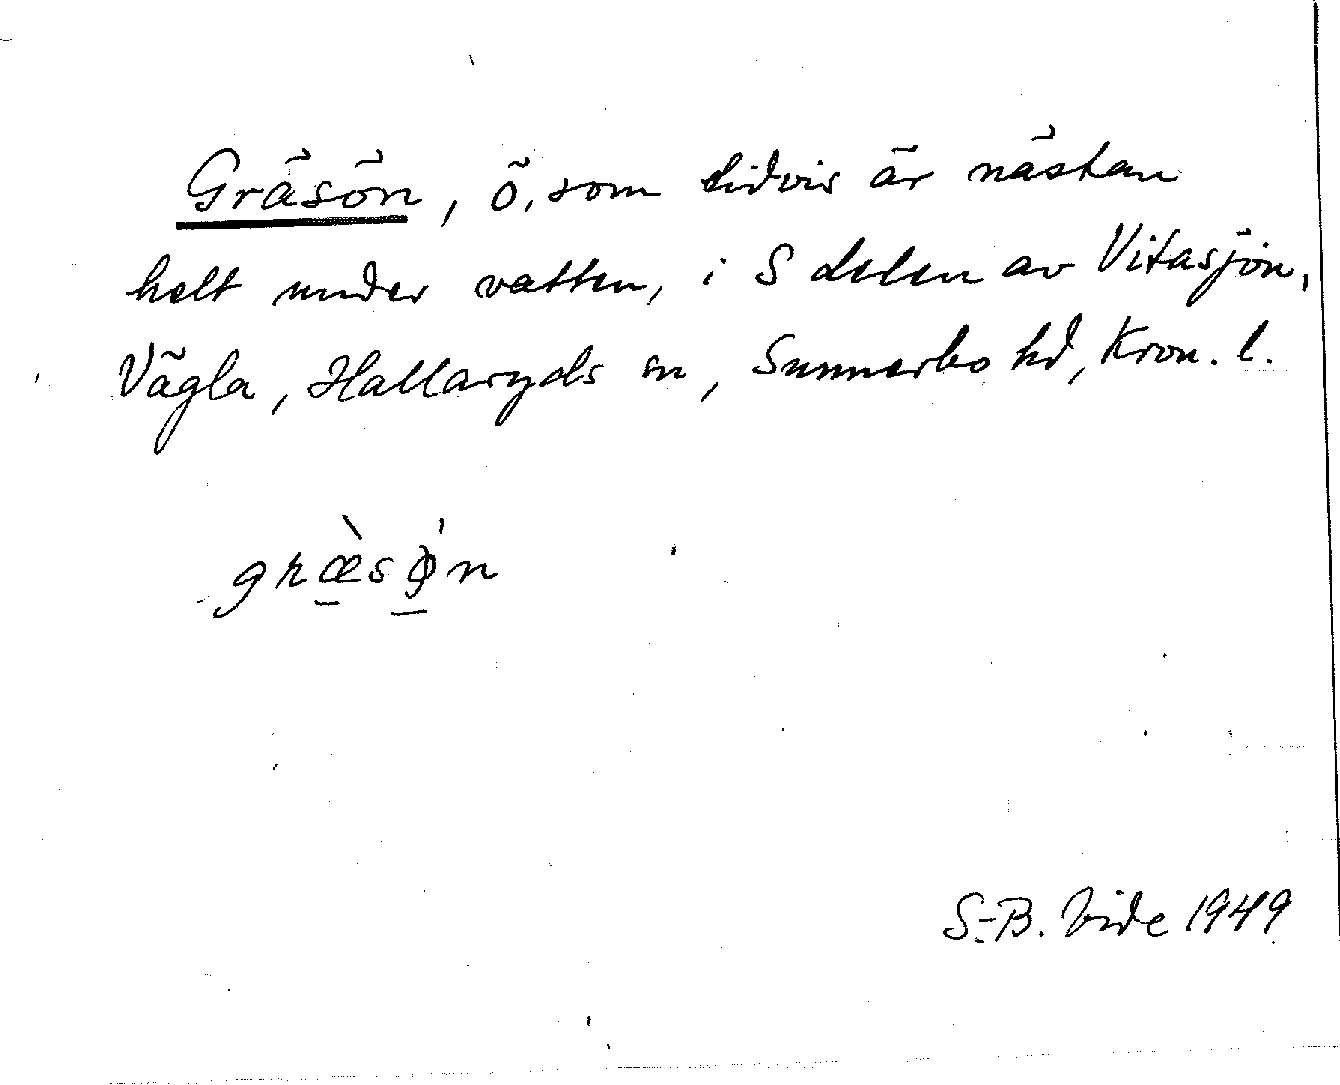 Gräsön, ö, som tidvis är nästan
helt under vatten, i S delen av Vitasjön,
Vägla, Hallaryds sn, Sunnerbo hd, Kron. l.
græ̠̀sǿ̠n
S-B. Vide 1949